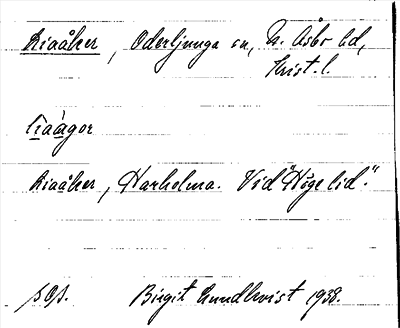 Kiaåker, Oderljunga sn, N. Åsbo hd,
Krist. l.
kìaàgor
Kiaåker, Harholma. Vid "Höge lid".
sOs. Birgit Lundkvist 1938.